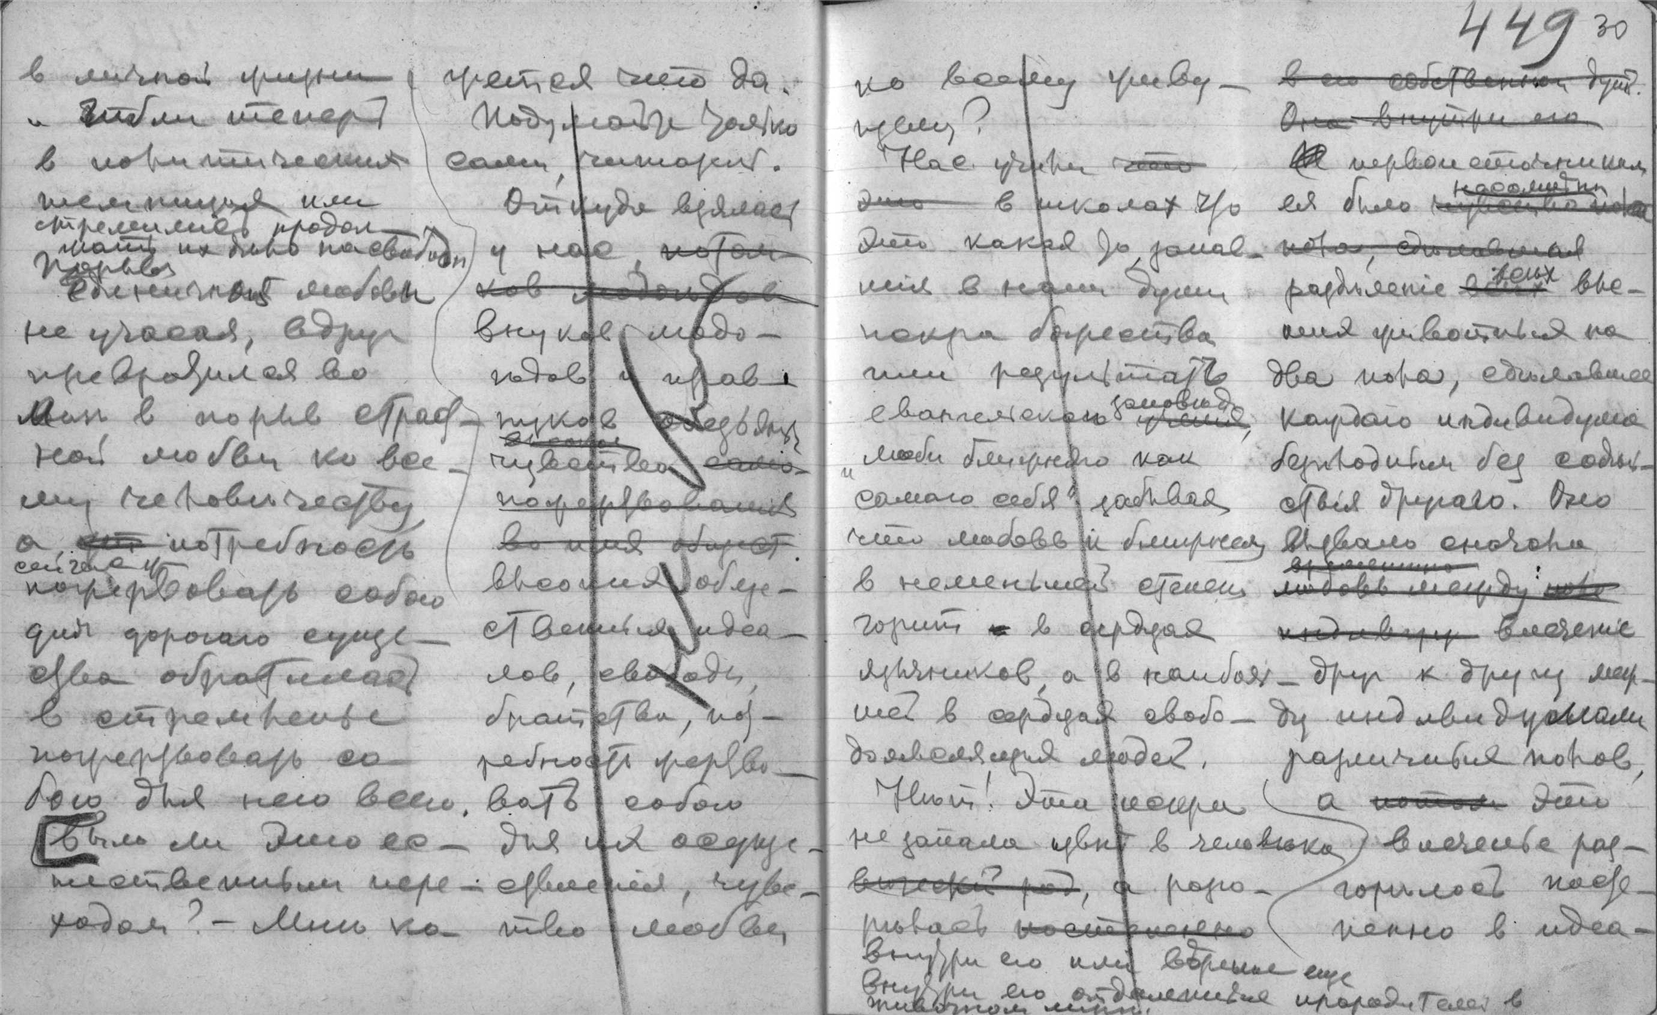 449 30
в личной жизни
и были теперь
в политических
темницах или
стремились продол-
жать их дело на свободе
Порыв
единичной любви
не угасая, вдруг
превратился во
мне в порыв страст-
ной любви ко все-
му человечеству
а потребность
сейчас же
пожертвовать собою
для дорогого суще-
ства обратилась
в стремленье
пожертвовать со-
бою для него всего.
Было ли это ес-
тественным пере-
ходом? — Мне ка-
жется что да.
Подумайте только
сами, читатель.
Откуда взялась
у нас, потом-
ков молоньдов
внуков
и прав-
нуков обезьян,
высокое
чувство само-
пожертвования
во имя общест.
высоких обще-
ственных идеа-
лов, свободы,
братства, пот-
ребность жертво-
вать собою
для их осуще-
ствления, чувс-
тво любви
ко всему живу-
щему?
Нас учили что
это в школах что
это какая то, запав-
шая в наши души
искра божества
или результат
евангельского заповеди учения,
„люби ближнего как
самого себя“ забывая
что любовь к ближнему
в неменьшей степени
горит в сердцах
язычников, а в наиболь-
шей в сердцах свобо-
домыслящих людей.
Нет! Эта искра
не запала извне в человека
ческий род, а разго-
ралась постепенно
внутри его или вернее еще
внутри его отдаленных прародителей в
животном мире.
в его собственной душе.
Она внутри его
первоисточником
ея было насомитьи
пола, сделавшая
разделение всех выс-
ших животных на
два пола, сделавшее
каждого индивидуума
безплодным без содей-
ствия другого. Оно
вызвало сначала
временно
любовь между
индивиду влечение
друг к другу меж-
ду индивидуумами
различных полов,
а потом это
влеченье раз-
горалось посте-
пенно в идеа-